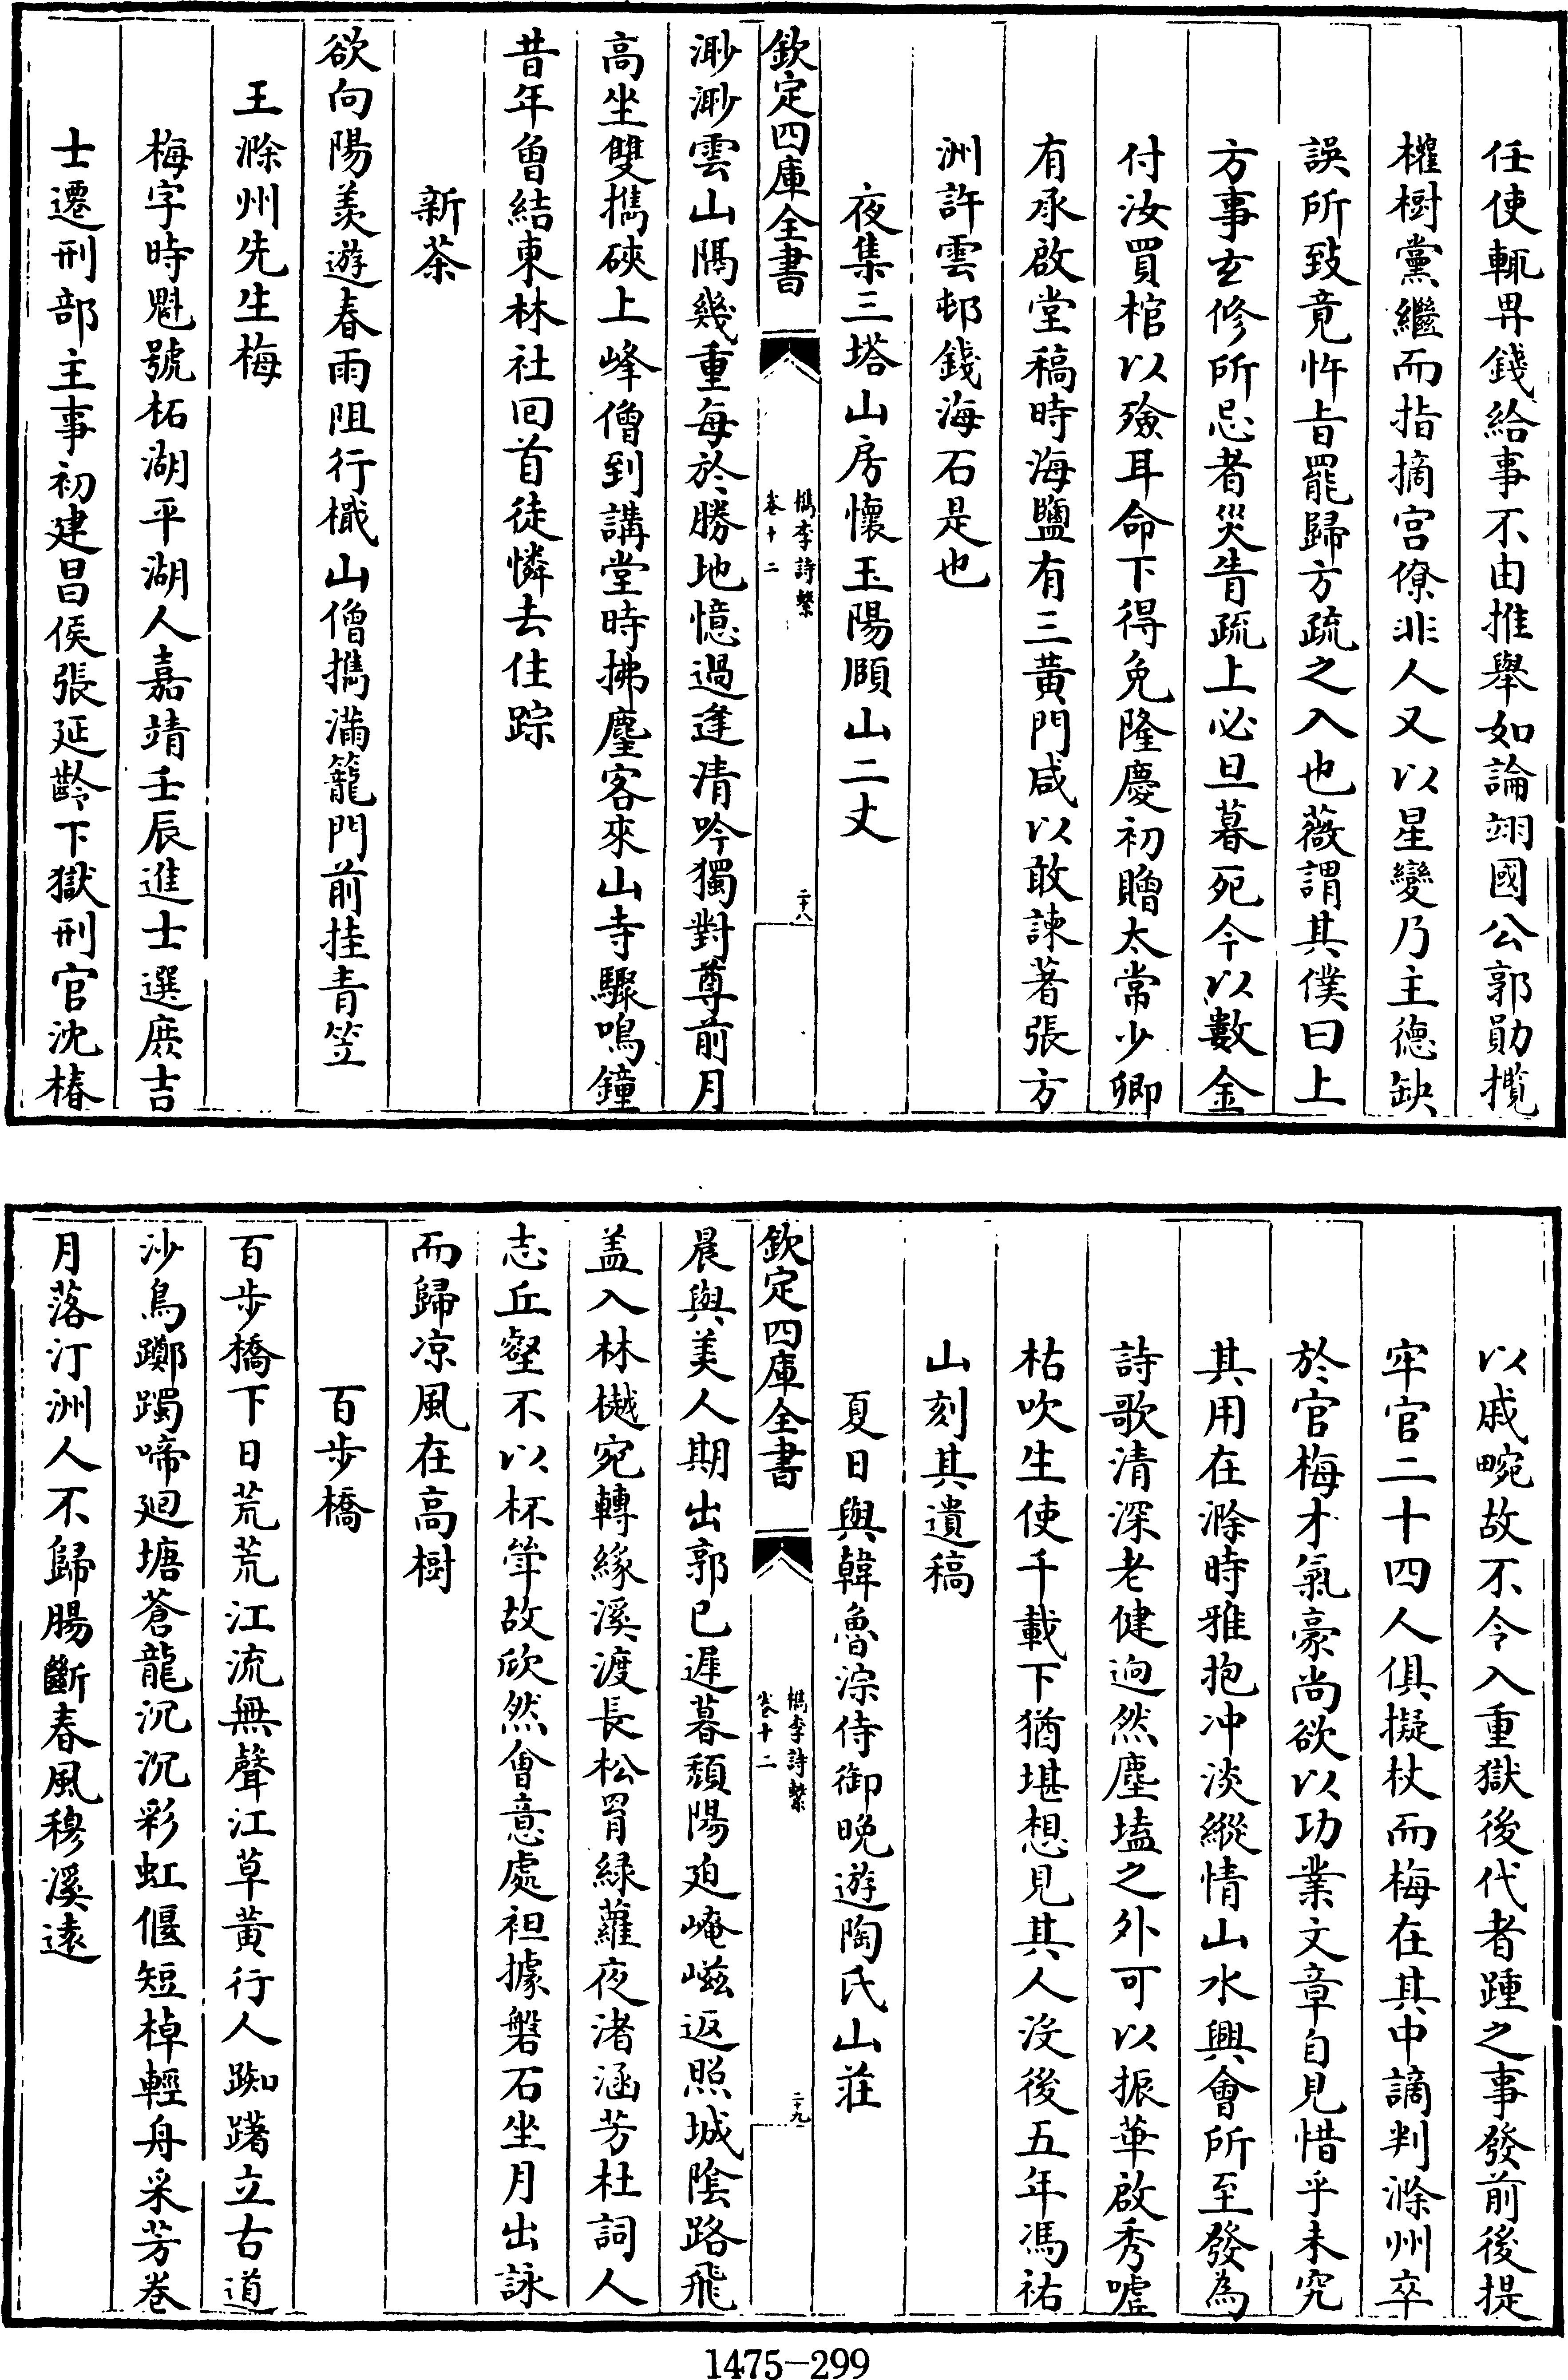 任使輒畀錢給事不由推舉如論翊國公郭勛攬
權樹黨繼而指摘宫僚非人又以星變乃主德缺
誤所致竟忤㫖罷歸方疏之入也薇謂其僕曰上
方事玄修所忌者災眚疏上必旦暮死今以數金
付汝買棺以殮耳命下得免隆慶初贈太常少卿
有承啟堂稿時海鹽有三黄門咸以敢諫著張方
洲許雲邨錢海石是也
夜集三塔山房懷玉陽頤山二丈
欽定四庫全書
檇李詩繫
卷十二
二十八
渺渺雲山隔幾重每於勝地憶過逢清吟獨對尊前月
高坐雙攜硤上峰僧到講堂時拂麈客來山寺驟鳴鐘
昔年曾結東林社回首徒憐去住踪
新茶
欲向陽羨遊春雨阻行檝山僧攜滿籠門前挂青笠
王滁州先生梅
梅字時魁號柘湖平湖人嘉靖壬辰進士選庶吉
士遷刑部主事初建昌侯張延齡下獄刑官沈椿
以戚畹故不令入重獄後代者踵之事發前後提
牢官二十四人俱擬杖而梅在其中謫判滁州卒
於官梅才氣豪尚欲以功業文章自見惜乎未究
其用在滁時雅抱冲淡縱情山水興會所至發為
詩歌清深老健迥然塵壒之外可以振華啟秀嘘
枯吹生使千載下猶堪想見其人没後五年馮祐
山刻其遺稿
夏日與韓魯淙侍御晚遊陶氏山莊
欽定四庫全書
檇李詩繫
卷十二
二十九
晨與美人期出郭已遲暮頽陽迫崦嵫返照城隂路飛
盖入林樾宛轉緣溪渡長松罥緑蘿夜渚涵芳杜詞人
志丘壑不以杯斚故欣然會意處袒據磐石坐月出詠
而歸凉風在高樹
百步橋
百步橋下日荒荒江流無聲江草黄行人踟躇立古道
沙鳥躑躅啼廻塘蒼龍沉沉彩虹偃短棹輕舟采芳巻
月落汀洲人不歸腸斷春風穆溪遠
1475-299